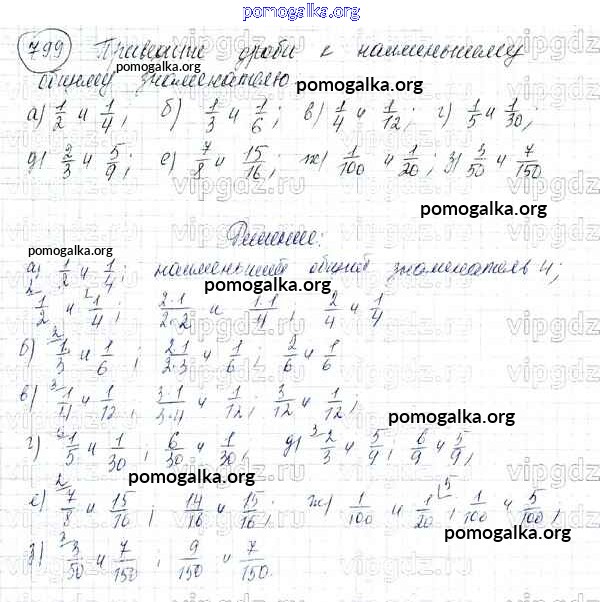 pomogalka.org
799 Привести дроби к наименьшему
pomogalka.org
общему знаменателю
pomogalka.org
а) 1/2 и 1/4; б) 1/3 и 1/6; в) 1/4 и 1/12; г) 1/5 и 1/30;
д) 2/3 и 5/9; е) 7/8 и 15/16; ж) 1/100 и 1/20; з) 3/50 и 7/150
vipgdz.ru
pomogalka.org
Решение:
pomogalka.org
а) 1/2 и 1/4; наименьший общий знаменатель 4;
pomogalka.org
2 1/2 и 1 1/4; 2·1/2·2 и 1·1/4; 2/4 и 1/4
vipgdz.ru
б) 2 1/3 и 1/6; 2·1/2·3 и 1/6; 2/6 и 1/6
в) 3 1/4 и 1/12; 3·1/3·4 и 1/12; 3/12 и 1/12;
pomogalka.org
г) 6 1/5 и 1/30; 6/30 и 1/30; д) 3 2/3 и 5/9; 6/9 и 5/9;
pomogalka.org
е) 2 7/8 и 15/16; 14/16 и 15/16; ж) 1/100 и 1/20 5; 1/100 и 5/100;
pomogalka.org
з) 3 3/50 и 7/150; 9/150 и 7/150.